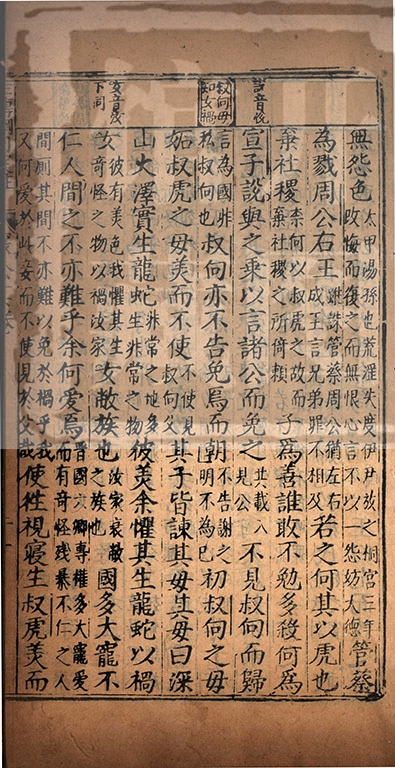 說音悅
叔向母
知女禍
女音汝
下同
無怨色太甲湯孫也荒淫失度伊尹放之桐宮三年改悔而復之而無恨心言不以一怨妨大德管蔡
為戮周公右王雖誅管蔡周公猶左右成王言兄弟罪不相及若之何其以虎也
棄社稷奈何以叔虎之故而棄社稷之所倚賴子為善誰敢不勉多殺何為
宣子說與之乘以言諸公而免之共載入見公不見叔向而歸
言為國非私叔向也叔向亦不告免焉而朝不告謝之明不為己初叔向之母
妬叔虎之母美而不使不使見叔向父其子皆諫其母其母曰深
山大澤實生龍蛇非常之地多生非常之物彼美余懼其生龍蛇以禍
女彼有美色我懼其生奇怪之物以禍汝家女敝族也汝家衰敝之族也國多大寵不
仁人間之不亦難乎余何愛焉晉國六卿專權多大寵愛而有奇怪殘暴不仁之人
間厠其間不亦難以免於禍乎我又何愛於此妾而不使見於父哉使往視寢生叔虎美而